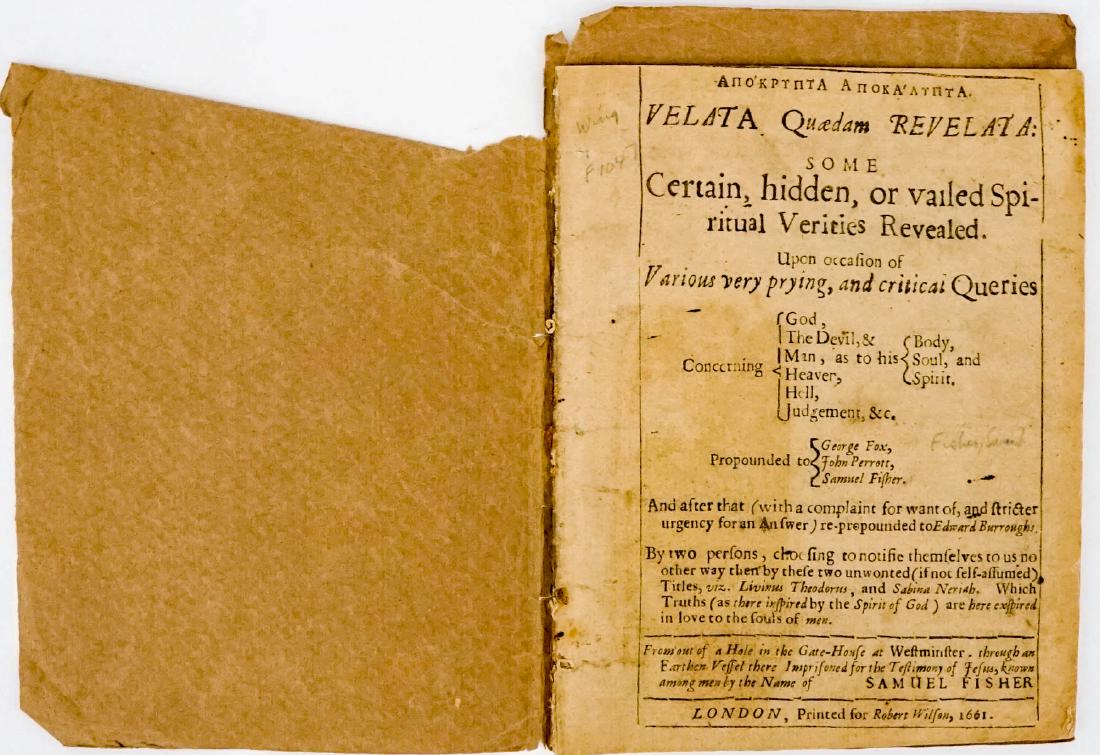 ΑΠΟ'ΚΡΥΠΤΑ ΑΠΟΚΑ'ΛΥΠΤΑ.
VELATA Quædam REVELATA:
SOME
Certain, hidden, or vailed Spi-
ritual Verities Revealed.
Upon occaſion of
Various very prying, and critical Queries
Concerning
God,
The Devil, &
Man, as to his
Heaven,
Hell,
Judgement, &c.
Body,
Soul, and
Spirit.
Propounded to
George Fox,
John Perrott,
Samuel Fiſher.
And after that (with a complaint for want of, and ſtricter
urgency for an Anſwer) re-propounded to Edward Burroughs.
By two perſons, chooſing to notifie themſelves to us no
other way then by theſe two unwonted (if not ſelf-aſſumed)
Titles, viz. Livinus Theodorus, and Sabina Neriah. Which
Truths (as there inſpired by the Spirit of God) are here exſpired
in love to the ſouls of men.
From out of a Hole in the Gate-Houſe at Weſtminſter. through an
Earthen Veſſel there Impriſoned for the Teſtimony of Jeſus, known
among men by the Name of SAMUEL FISHER
LONDON, Printed for Robert Wilſon, 1661.
Wing
F1047